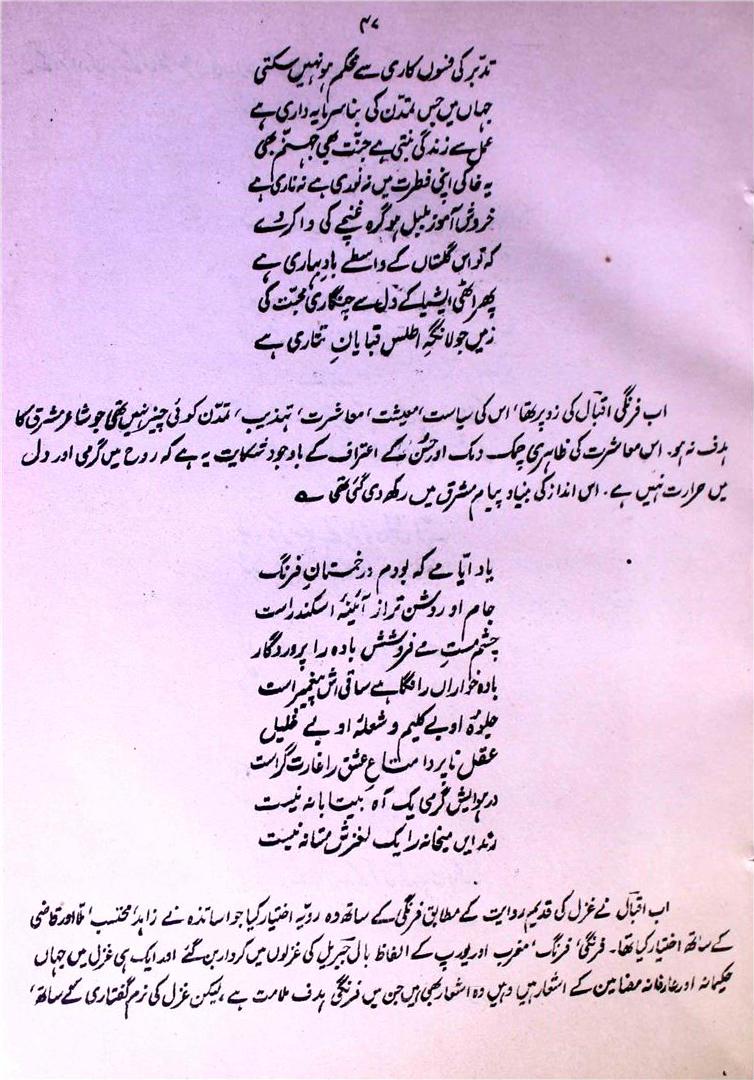 ۴۷
تدبّر کی فسوں کاری سے محکم ہو نہیں سکتی
جہاں میں جس تمدّن کی بنا سرمایہ داری ہے
عمل سے زندگی بنتی ہے جنّت بھی جہنّم بھی
یہ خاکی اپنی فطرت میں نہ نوری ہے نہ ناری ہے
خروش آموز بلبل ہو گرہ غنچے کی وا کر دے
کہ تو اس گلستاں کے واسطے بادِ بہاری ہے
پھر اٹھی ایشیا کے دل سے چنگاری محبّت کی
زمیں جولانگہِ اطلس قبایانِ تتاری ہے
اب فرنگی اقبالؔ کی زد پر تھا، اس کی سیاست، معیشت، معاشرت، تہذیب، تمدّن کوئی چیز نہیں تھی جو شاعرِ مشرق کا
ہدف نہ ہو۔ اس معاشرت کی ظاہری چمک دمک اور حسن کے اعتراف کے باوجود شکایت یہ ہے کہ روح میں گرمی اور دل
میں حرارت نہیں ہے۔ اس انداز کی بنیاد پیامِ مشرق میں رکھ دی گئی تھی ؎
یاد ایّامے کہ بودم در خمستانِ فرنگ
جام او روشن تر از آئینۂ اسکندر است
چشمِ مستِ مے فروشش بادہ را پروردگار
بادہ خواراں را نگاہے ساقی اش پیغمبر است
جلوۂ او بے کلیم و شعلۂ او بے خلیل
عقل ناپروا متاعِ عشق را غارت گر است
در ہوایش گرمیِ یک آہ بیتابانہ نیست
رند ایں میخانہ را یک لغزشِ مستانہ نیست
اب اقبالؔ نے غزل کی قدیم روایت کے مطابق فرنگی کے ساتھ وہ رویّہ اختیار کیا جو اساتذہ نے زاہد، محتسب، ملّا اور قاضی
کے ساتھ اختیار کیا تھا۔ فرنگی، فرنگ، مغرب اور یورپ کے الفاظ بالِ جبریل کی غزلوں میں کردار بن گئے اور ایک ہی غزل میں جہاں
حکیمانہ اور عارفانہ مضامین کے اشعار ہیں وہیں وہ اشعار بھی ہیں جن میں فرنگی ہدفِ ملامت ہے، لیکن غزل کی نرم گفتاری کے ساتھ،